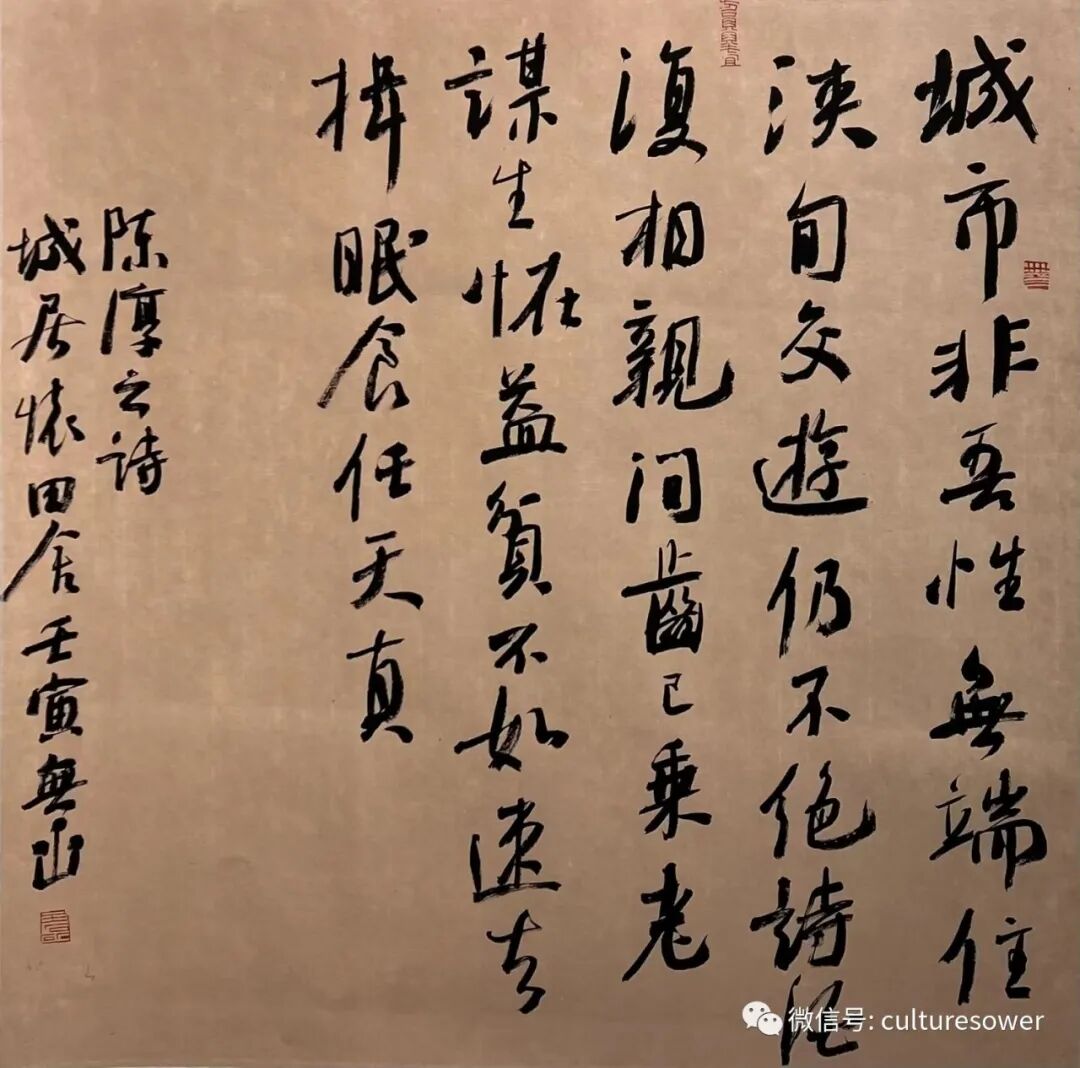 城市非吾性無端住
浹旬交遊仍不絕詩酒
復相親問齒已乘老
謀生恠益貧不如速去
揖眠食任天真
陳淳之詩
城居懷田舍壬寅無山
微信号: culturesower